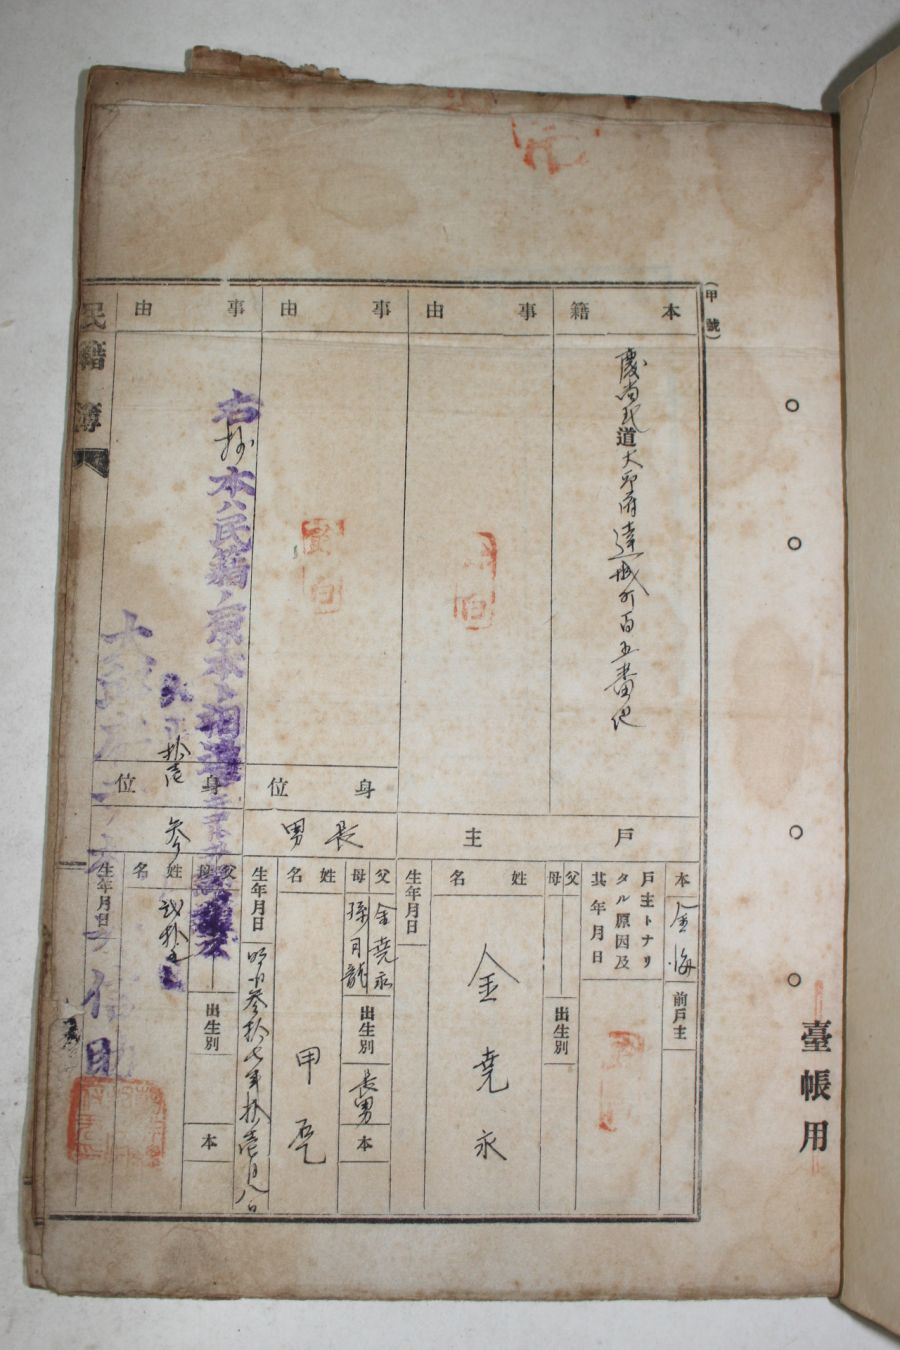 臺帳用
(甲號)
本籍
慶尚北道大邱府達城町百五番地
戶主
本
金海
前戶主
戶主トナリタル原因及其年月日
父
母
出生別
姓名
金堯永
生年月日
事由
事由
身位
長男
父
金堯永
母
孫月龍
出生別
長男
本
姓名
甲
生年月日
明治參拾七年拾壱月八日
事由
身位
父
母
出生別
本
姓名
生年月日
右抄本ハ民籍ノ原本ト相違ナキコトヲ認證ス
大正拾壱
參
弐拾五
民籍簿